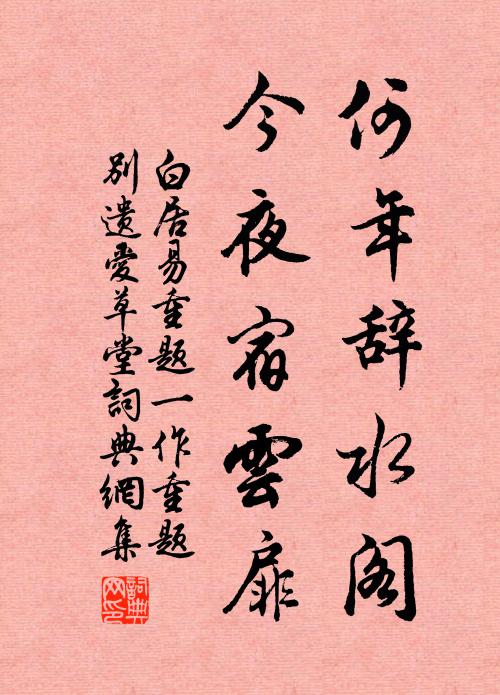 何年辞水阁
今夜宿雲扉
白居易重题一作重题
别遗爱草堂詞典網集
詞典网印